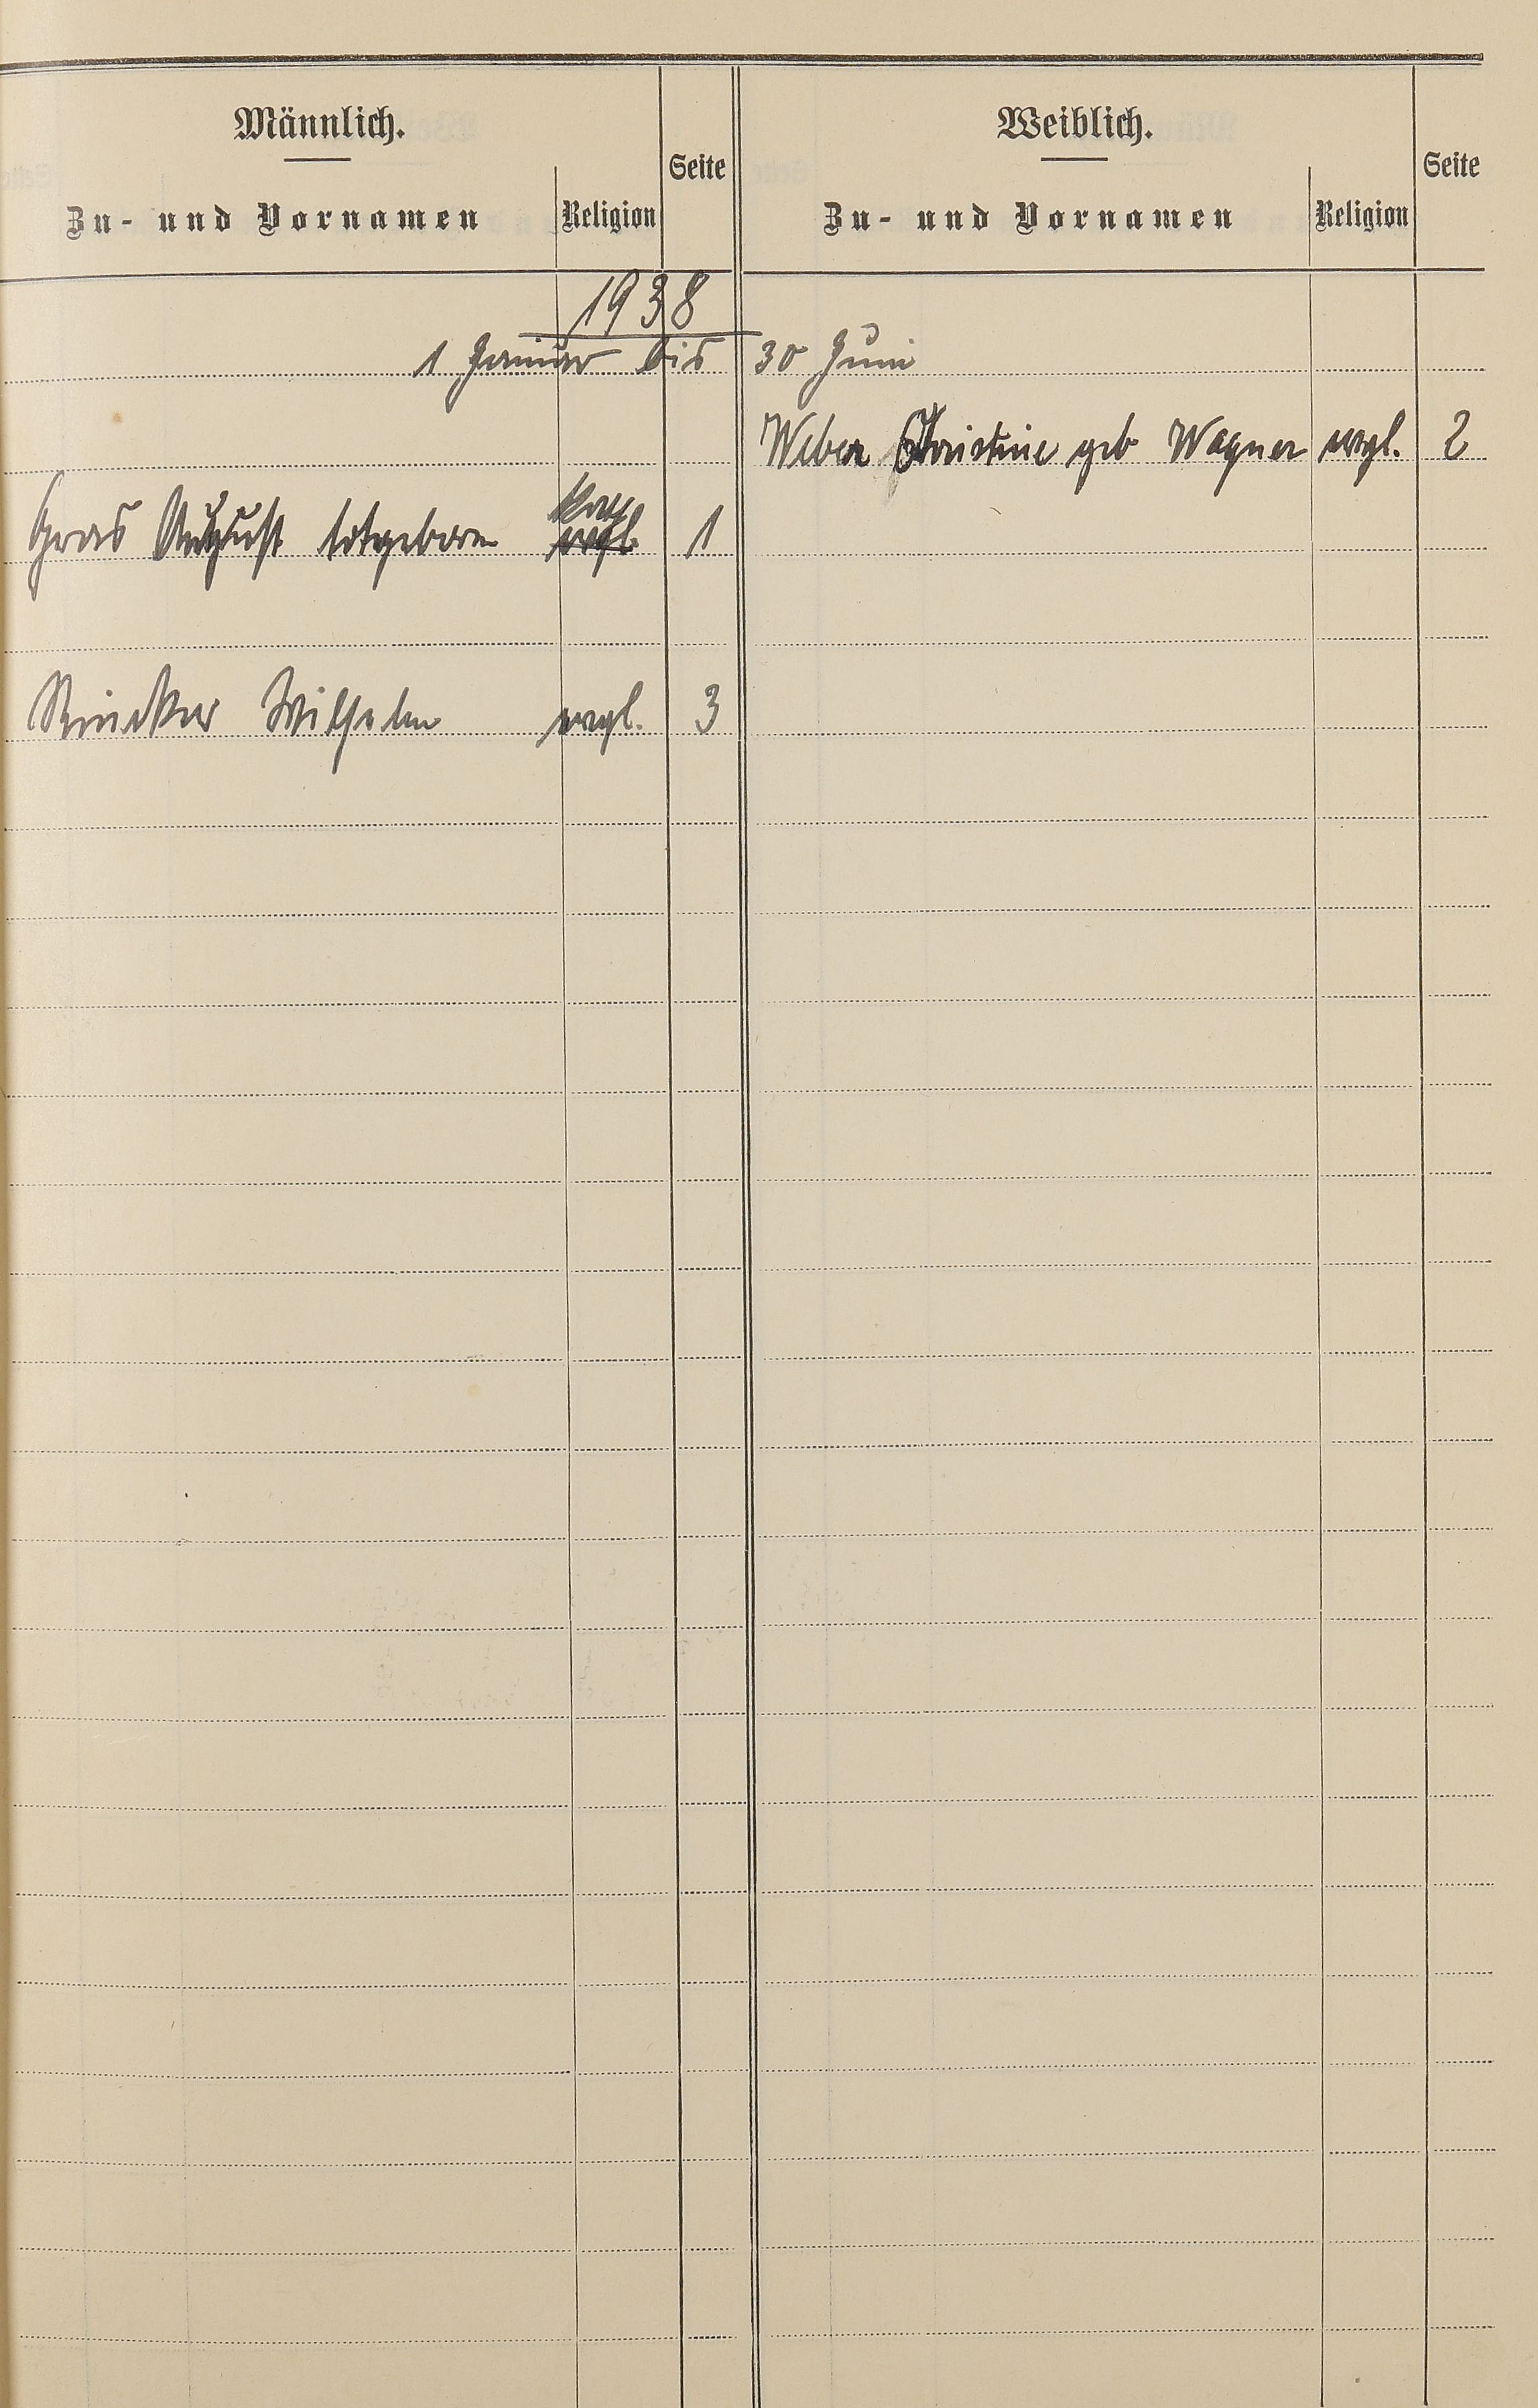 Männlich.
Zu- und Vornamen
Religion
Seite
Weiblich.
Zu- und Vornamen
Religion
Seite
1938
1 Januar bis 30 Juni
Weber Christine geb Wagner evgl. 2
kath
Gras August totgeboren evgl 1
Rincker Wilhelm evgl. 3